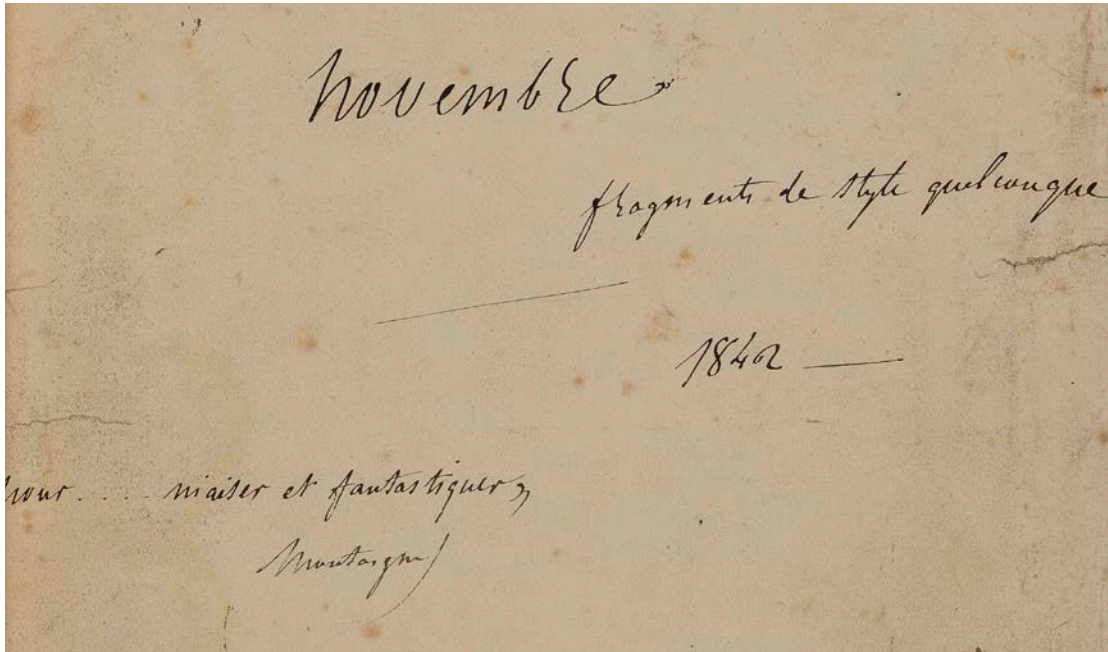 Novembre
fragments de style quelconque
1842 —
pour .... niaiser et fantastiquer »
Montaigne)